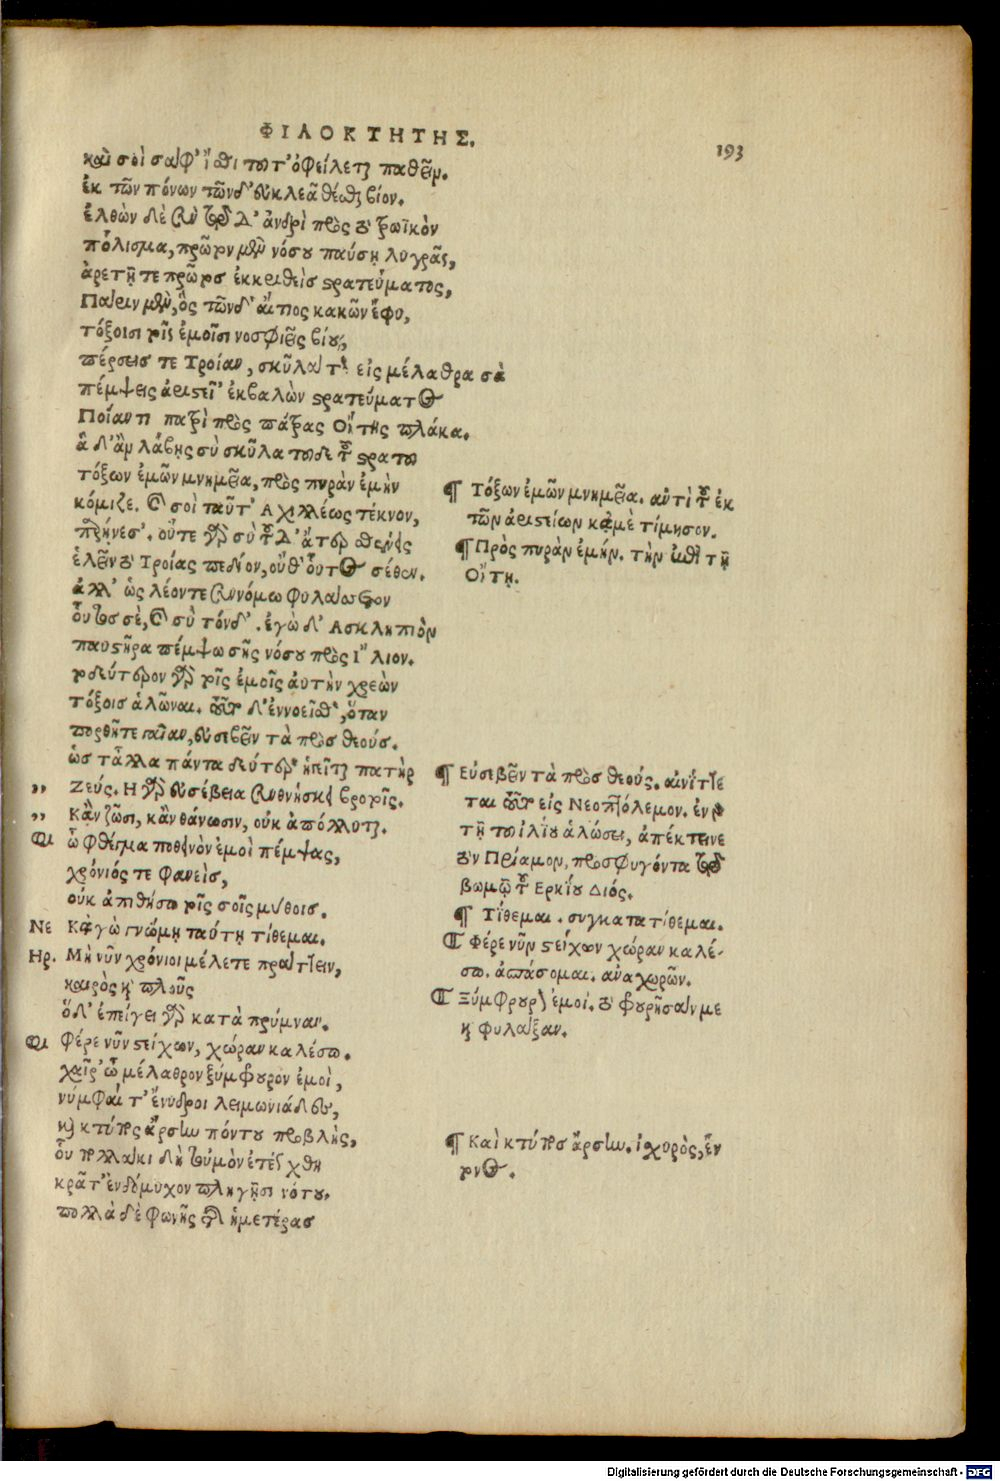 ΦΙΛΟΚΤΗΤΗΣ.
193
καὶ σοὶ σάφ' ἴσθι τοῦτ' ὀφείλεται παθεῖν.
ἐκ τῶν πόνων τῶνδ' εὐκλεᾶ θέσθαι βίον.
ἐλθὼν δὲ σὺν τῷδ' ἀνδρὶ πρὸς τὸ τρωϊκὸν
πόλισμα, πρῶτον μὲν νόσου παύσῃ λυγρᾶς,
ἀρετῇ τε πρῶτος ἐκκριθεὶς στρατεύματος,
Πάριν μὲν, ὃς τῶνδ' αἴτιος κακῶν ἔφυ,
τόξοισι τοῖς ἐμοῖσι νοσφιεῖς βίου,
πέρσεις τε Τροίαν, σκῦλά τ' εἰς μέλαθρα σὰ
πέμψεις ἀριστεῖ' ἐκβαλὼν στρατεύματος
Ποίαντι πατρὶ πρὸς πάτρας Οἴτης πλάκα.
ἃ δ' ἂν λάβῃς σὺ σκῦλα τοῦδε τοῦ στρατοῦ
τόξων ἐμῶν μνημεῖα, πρὸς πυρὰν ἐμὴν
κόμιζε. καὶ σοὶ ταῦτ' Ἀχιλλέως τέκνον,
παρῄνεσ'. οὔτε γὰρ σὺ τοῦδ' ἄτερ σθένεις
ἑλεῖν τὸ Τροίας πεδίον, οὔθ' οὗτος σέθεν.
ἀλλ' ὡς λέοντε συννόμω φυλάσσετον
οὗτος σὲ, καὶ σὺ τόνδ'. ἐγὼ δ' Ἀσκληπιὸν
παυστῆρα πέμψω σῆς νόσου πρὸς Ἴλιον.
τοδεύτερον γὰρ τοῖς ἐμοῖς αὐτὴν χρεὼν
τόξοις ἁλῶναι. τοῦτο δ' ἐννοεῖσθ', ὅταν
πορθῆτε γαῖαν, εὐσεβεῖν τὰ πρὸς θεούς.
ὡς τἆλλα πάντα δεύτερ' ἡγεῖται πατὴρ
,, Ζεύς. Η γὰρ εὐσέβεια συνθνήσκει βροτοῖς.
,, Κἂν ζῶσι, κἂν θάνωσιν, οὐκ ἀπόλλυται.
Φι ὦ φθέγμα ποθεινὸν ἐμοὶ πέμψας,
χρόνιός τε φανεὶς,
οὐκ ἀπιθήσω τοῖς σοῖς μύθοις.
Νε Κἀγὼ γνώμῃ ταύτῃ τίθεμαι.
Ηρ. Μὴ νῦν χρόνιοι μέλετε πράττειν,
καιρὸς καὶ πλοῦς
ὅδ' ἐπείγει γὰρ κατὰ πρύμναν.
Φι Φέρε νῦν στείχων, χώραν καλέσω.
χαῖρ' ὦ μέλαθρον ξύμφρουρον ἐμοὶ,
νύμφαι τ' ἔνυδροι λειμωνιάδες,
καὶ κτύπος ἄρσην πόντου προβλὴς,
οὗ πολλάκι δὴ τοὐμὸν ἐτέγχθη
κρᾶτ' ἐνδόμυχον πληγῇσι νότου.
πολλὰ δὲ φωνῆς τῆς ἡμετέρας
¶ Τόξων ἐμῶν μνημεῖα. ἀντὶ τοῦ ἐκ
τῶν ἀριστείων κἀμὲ τίμησον.
¶ Πρὸς πυρὰν ἐμήν. τὴν ἐπὶ τῇ
Οἴτῃ.
¶ Εὐσεβεῖν τὰ πρὸς θεούς. αἰνίττε
ται τοῦτο εἰς Νεοπτόλεμον. ἐν γὰρ
τῇ τοῦ ἰλίου ἁλώσει, ἀπέκτεινε
τὸν Πρίαμον, προσφυγόντα τῷ
βωμῷ τοῦ Ερκίου Διός.
¶ Τίθεμαι. συγκατατίθεμαι.
¶ Φέρε νῦν στείχων χώραν καλέ-
σω. ἀσπάσομαι. ἀναχωρῶν.
¶ Ξύμφρουρον ἐμοί. τὸ φρουρῆσάν με
καὶ φυλάξαν.
¶ Καὶ κτύπος ἄρσην. ἰσχυρὸς, ἔν
τονος.
Digitalisierung gefördert durch die Deutsche Forschungsgemeinschaft - DFG